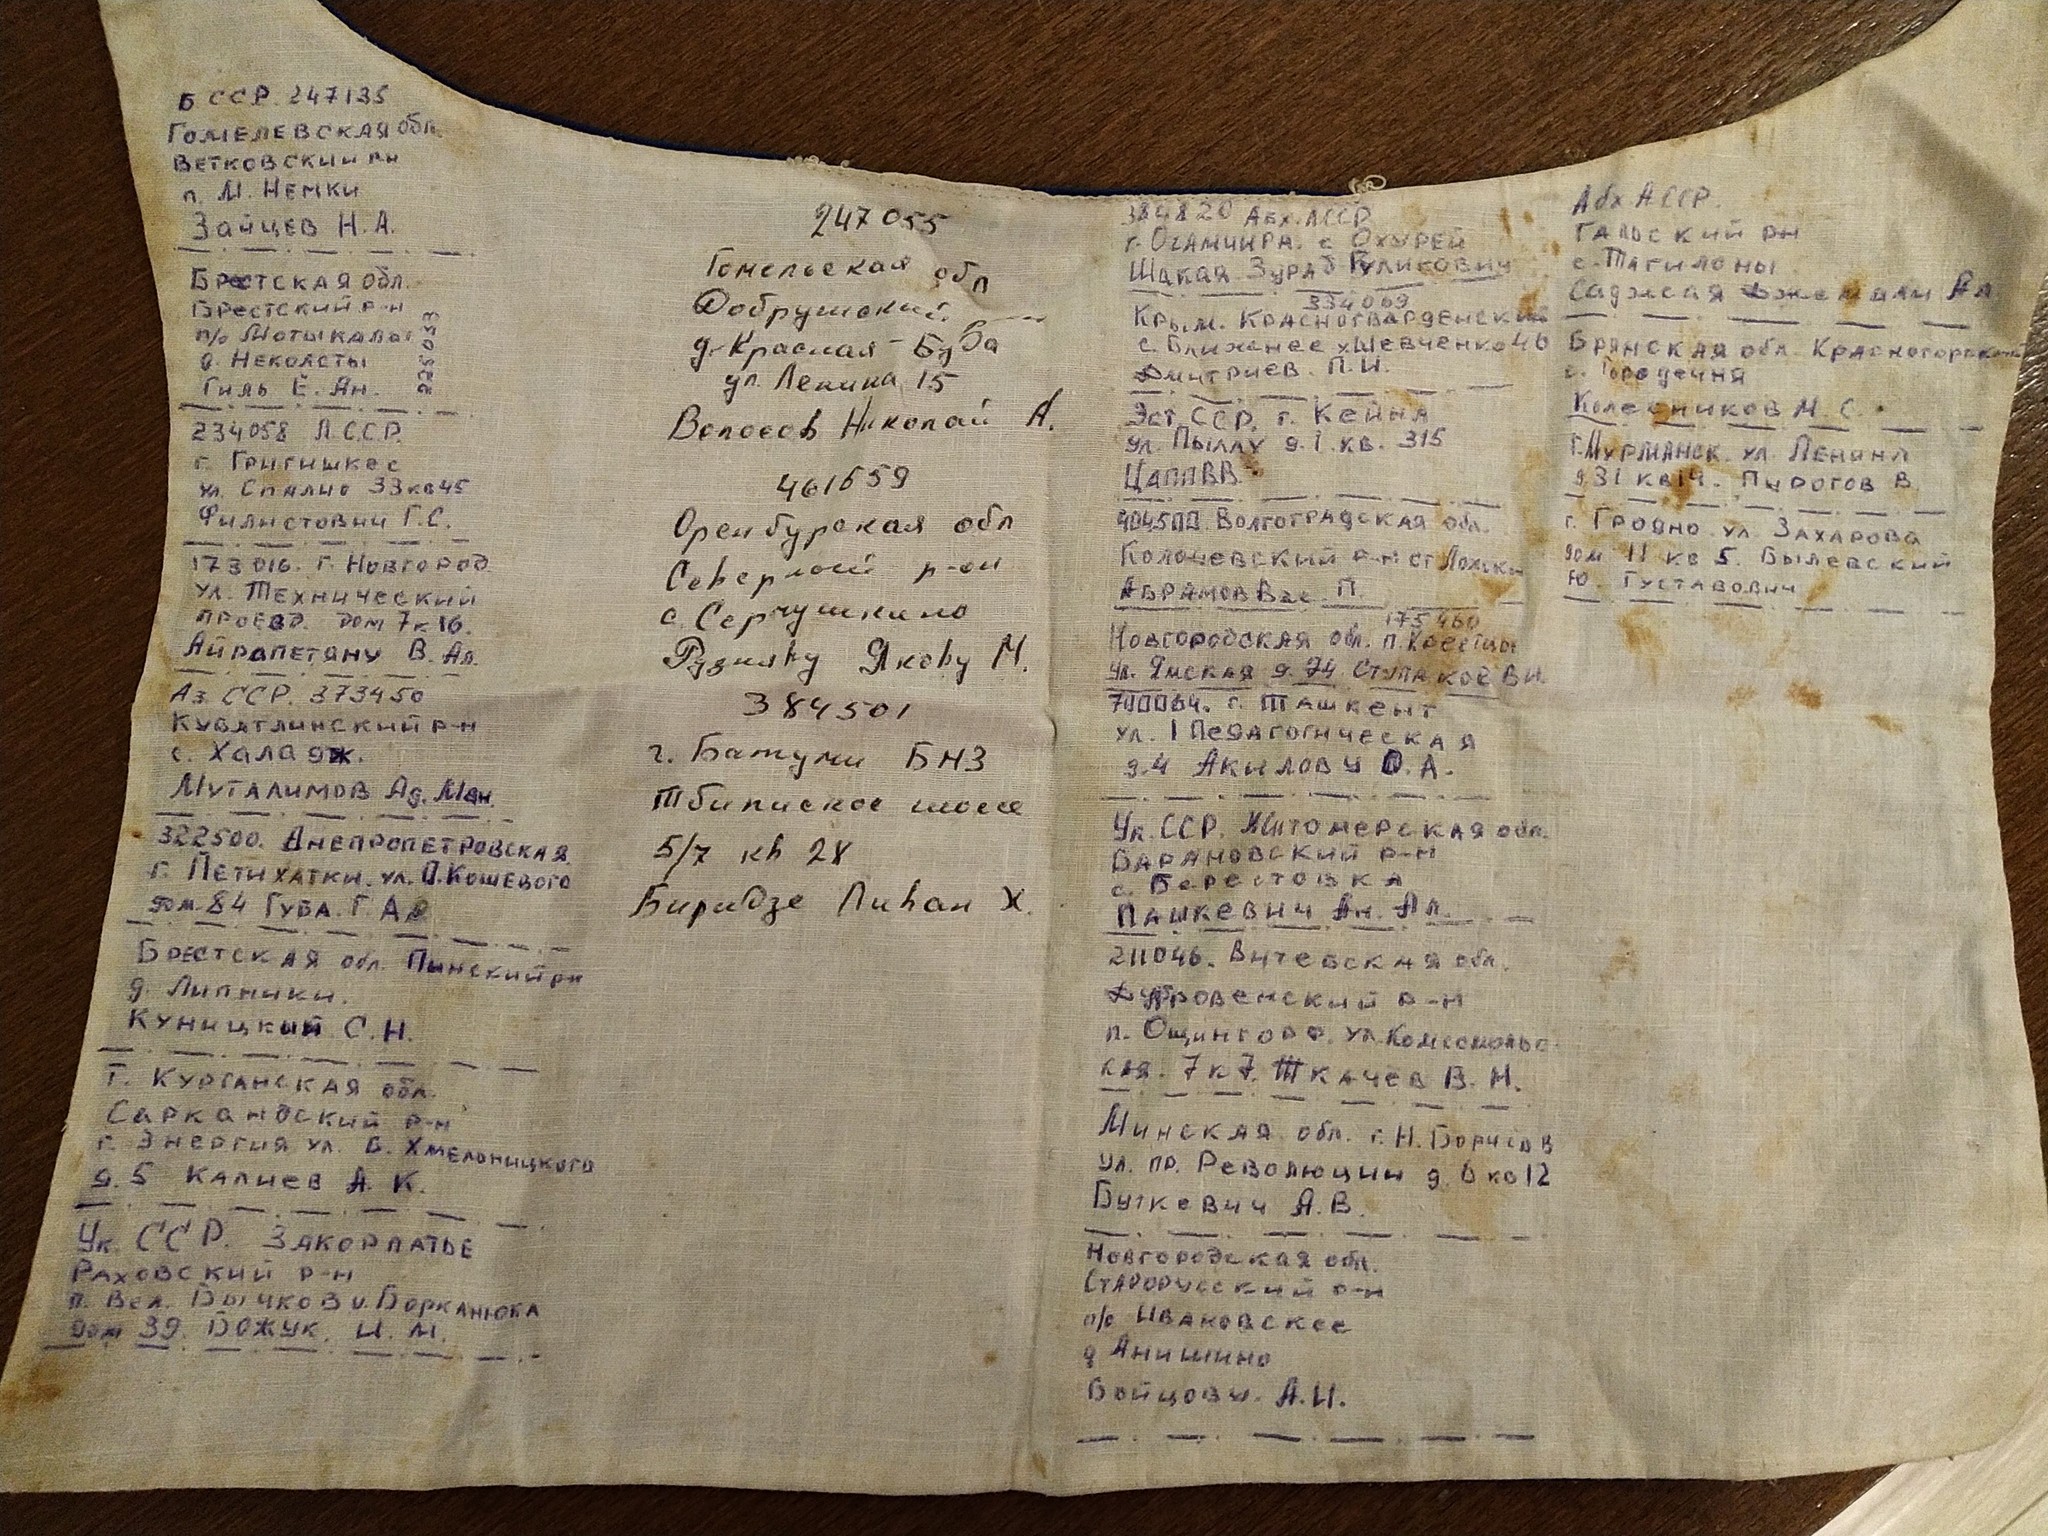 Б ССР. 247135
ГОМЕЛЕВСКАЯ обл.
ВЕТКОВСКИЙ рн
п. М. НЕМКИ
ЗАЙЦЕВ Н.А.
БРЕСТСКАЯ обл.
БРЕСТСКИЙ Р-Н
п/о МОТЫКАЛЫ
д. НЕКОЛСТЫ
ГИЛЬ Е. Ан.
225033
234058 Л.С.С.Р.
г. ГРИГИШКЕС
ул. СПАЛИО 33 кв 45
ФИЛИСТОВИЧ Г.С.
173016. г. НОВГОРОД
УЛ. ТЕХНИЧЕСКИЙ
ПРОЕЗД. ДОМ 7 к 16.
АЙРАПЕТЯНУ В. Ал.
Аз ССР. 373450
КУБАТЛИНСКИЙ Р-Н
с. ХАЛАДЖ.
МУТАЛИМОВ Ад. Ман.
322500. ДНЕПРОПЕТРОВСКАЯ
Г. ПЕТИХАТКИ. УЛ. П. КОШЕВОГО
дом. 84 ГУБА. Г. А
БРЕСТСКАЯ обл. ПИНСКИЙ рн
д. ЛИПНИКИ.
КУНИЦКИЙ С.Н.
Т. КУРГАНСКАЯ обл.
САРКАНДСКИЙ Р-Н
г. ЭНЕРГИЯ УЛ. Б. ХМЕЛЬНИЦКОГО
д. 5 КАЛИЕВ А. К.
Ук. ССР. ЗАКОРПАТЬЕ
РАХОВСКИЙ Р-Н
п. ВЕЛ. БЫЧКОВ БОРКАНЮКА
дом 39. БОЖУК. И. М.
247055
Гомельская обл
Добрушский р-н
д. Красная-Буда
ул. Ленина 15
Волосов Николай А.
461659
Оренбурская обл
Северный р-он
с. Серчушкино
Рузняву Якову М.
384501
г. Батуми БНЗ
Тбилиское шоссе
5/7 кв 28
Биридзе Ливан Х.
384820 АБХ. АССР
г. ОЧАМЧИРА. с ОХУРЕЙ
ШАКАЯ ЗУРАБ ГУЛИКОВИЧ
334069
КРЫМ. КРАСНОГВАРДЕНСКИЙ
с. БЛИЖНЕЕ ул ШЕВЧЕНКО 46
ДМИТРИЕВ. П.И.
ЭСТ. ССР. г. КЕЙНА
ул. ПЫЛЛУ д. 1. кв. 315
ЦАПП В В
404500. ВОЛГОГРАДСКАЯ обл.
КОЛОЧЕВСКИЙ Р-Н СТ
АБРАМОВ Вас. П.
175460
НОВГОРОДСКАЯ обл. п. КРЕСТЦЫ
УЛ. ЯМСКАЯ д. 74 СТУПАКОВ В Н.
700064. г. ТАШКЕНТ
УЛ. 1 ПЕДАГОГИЧЕСКАЯ
д. 4 АКИЛОВУ О. А.
УК. ССР. ЖИТОМЕРСКАЯ обл.
БАРАНОВСКИЙ Р-Н
с. БЕРЕСТОВКА
ПАШКЕВИЧ Ан. Ал.
211046. ВИТЕБСКАЯ обл.
ДУБРОВЕНСКИЙ Р-Н
п. ОЩИНТОРФ. УЛ КОМСОМОЛЬС
КАЯ. 7 к 7. ТКАЧЕВ В. Н.
МИНСКАЯ обл. г. Н. БОРИСОВ
УЛ. ПР. РЕВОЛЮЦИИ д. 6 кв 12
БУТКЕВИЧ А.В.
НОВГОРОДСКАЯ обл.
СТАРОРУССКИЙ Р-Н
п/о ИВАНОВСКОЕ
д АНИШИНО
ВОЙЦОВУ. А.И.
Абх АССР.
ГАЛЬСКИЙ РН
с. ТАГИЛОНЫ
САДЖАЯ ДЖЕМАЛИ Ал
БРЯНСКАЯ обл. КРАСНОГОРСКИЙ
с. ГОРОДЕЧНЯ
КОЛЕСНИКОВ М. С.
Г. МУРМАНСК. УЛ. ЛЕНИНА
д 31 кв 14. ПИРОГОВ В.
г. ГРОДНО. УЛ. ЗАХАРОВА
дом 11 кв 5. БЫЛЕВСКИЙ
Ю. ГУСТАВОВИЧ